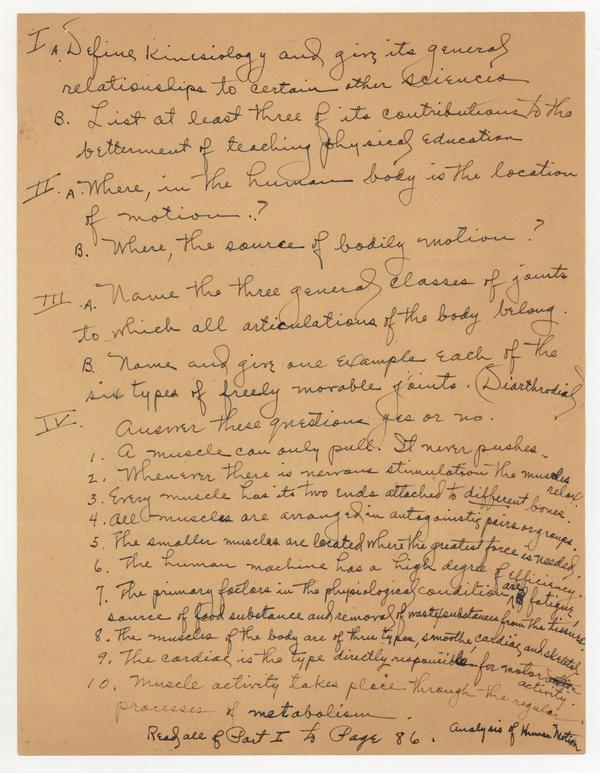 I A. Define Kinesiology and give its general
relationships to certain other sciences
B. List at least three of its contributions to the
betterment of teaching physical education
II. A. Where, in the human body is the location
of motion..?
B. Where, the source of bodily motion?
III. A. Name the three general classes of joints
to which all articulations of the body belong.
B. Name and give one example each of the
six types of freely movable joints. (Diarthrodial)
IV. Answer these questions yes or no.
1. A muscle can only pull. It never pushes.
2. Whenever there is nervous stimulation the muscles relax.
3. Every muscle has its two ends attached to different bones.
4. All muscles are arranged in antagonistic pairs or groups.
5. The smaller muscles are located where the greatest force is needed.
6. The human machine has a high degree of efficiency.
7. The primary factors in the physiological condition of fatigue, are
source of food substance and removal of waste substances from the tissues.
8. The muscles of the body are of three types, smooth, cardiac and skeletal
9. The cardiac is the type directly responsible for motor activity.
10. Muscle activity takes place through the regular
processes of metabolism.
Read all of Part I to Page 86. Analysis of Human Motion